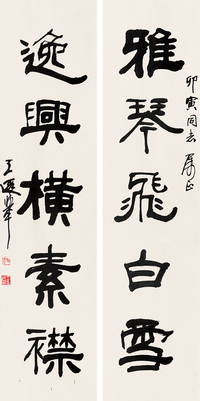 卯寅同志属正
雅琴飛白雪
逸興横素襟
王遐舉